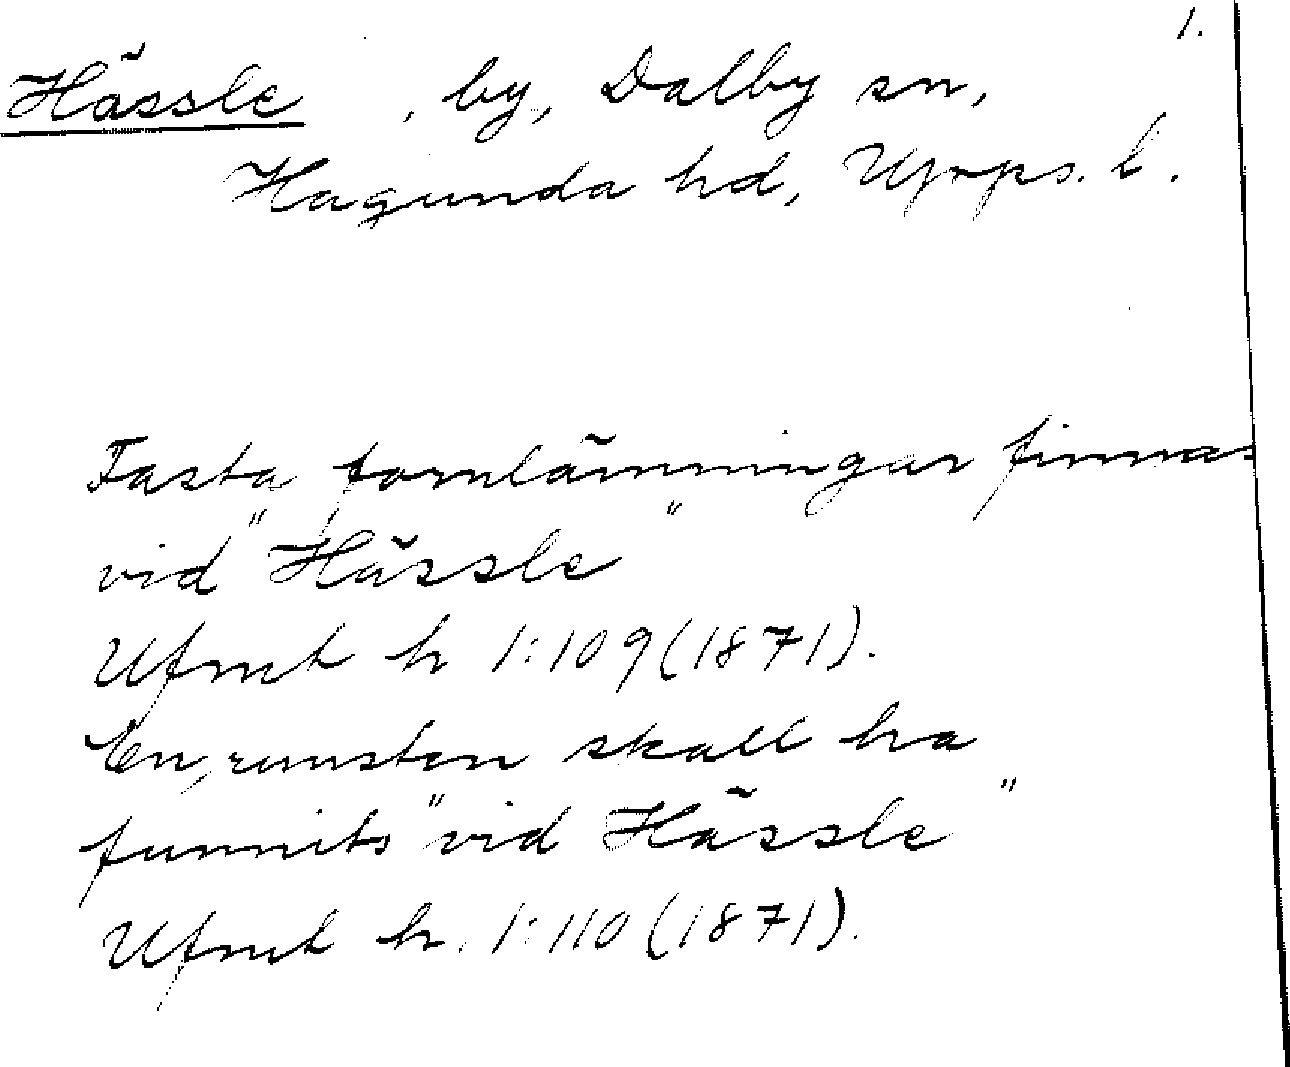 1.
Hässle , by, Dalby sn,
Hagunda hd, Upps. l.
Fasta fornlämningar finnas
vid "Hässle"
Ufmt h 1:109 (1871).
En runsten skall ha
funnits "vid Hässle"
Ufmt h. 1:110 (1871).